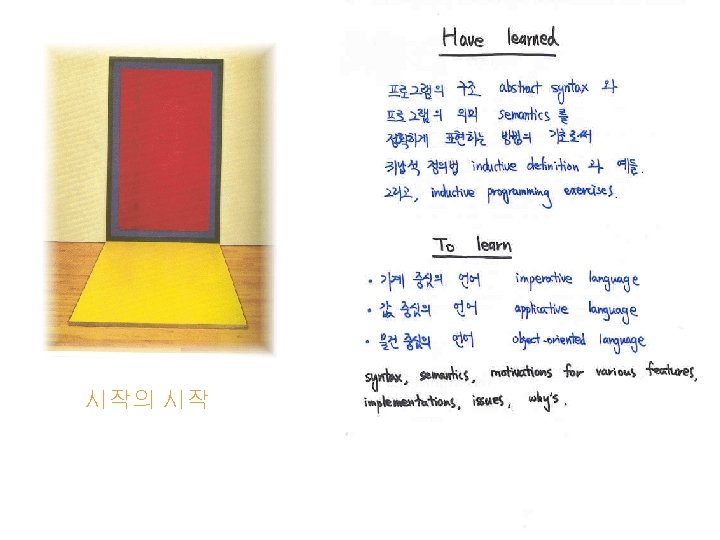 시작의 시작
Have learned
프로그램의 구조 abstract syntax 와
프로그램의 의미 semantics 를
정확하게 표현하는 방법의 기초로써
귀납적 정의법 inductive definition 와 예들.
그리고, inductive programming exercises.
To learn
• 기계 중심의 언어 imperative language
• 값 중심의 언어 applicative language
• 물건 중심의 언어 object-oriented language
syntax, semantics, motivations for various features,
implementations, issues, why's.